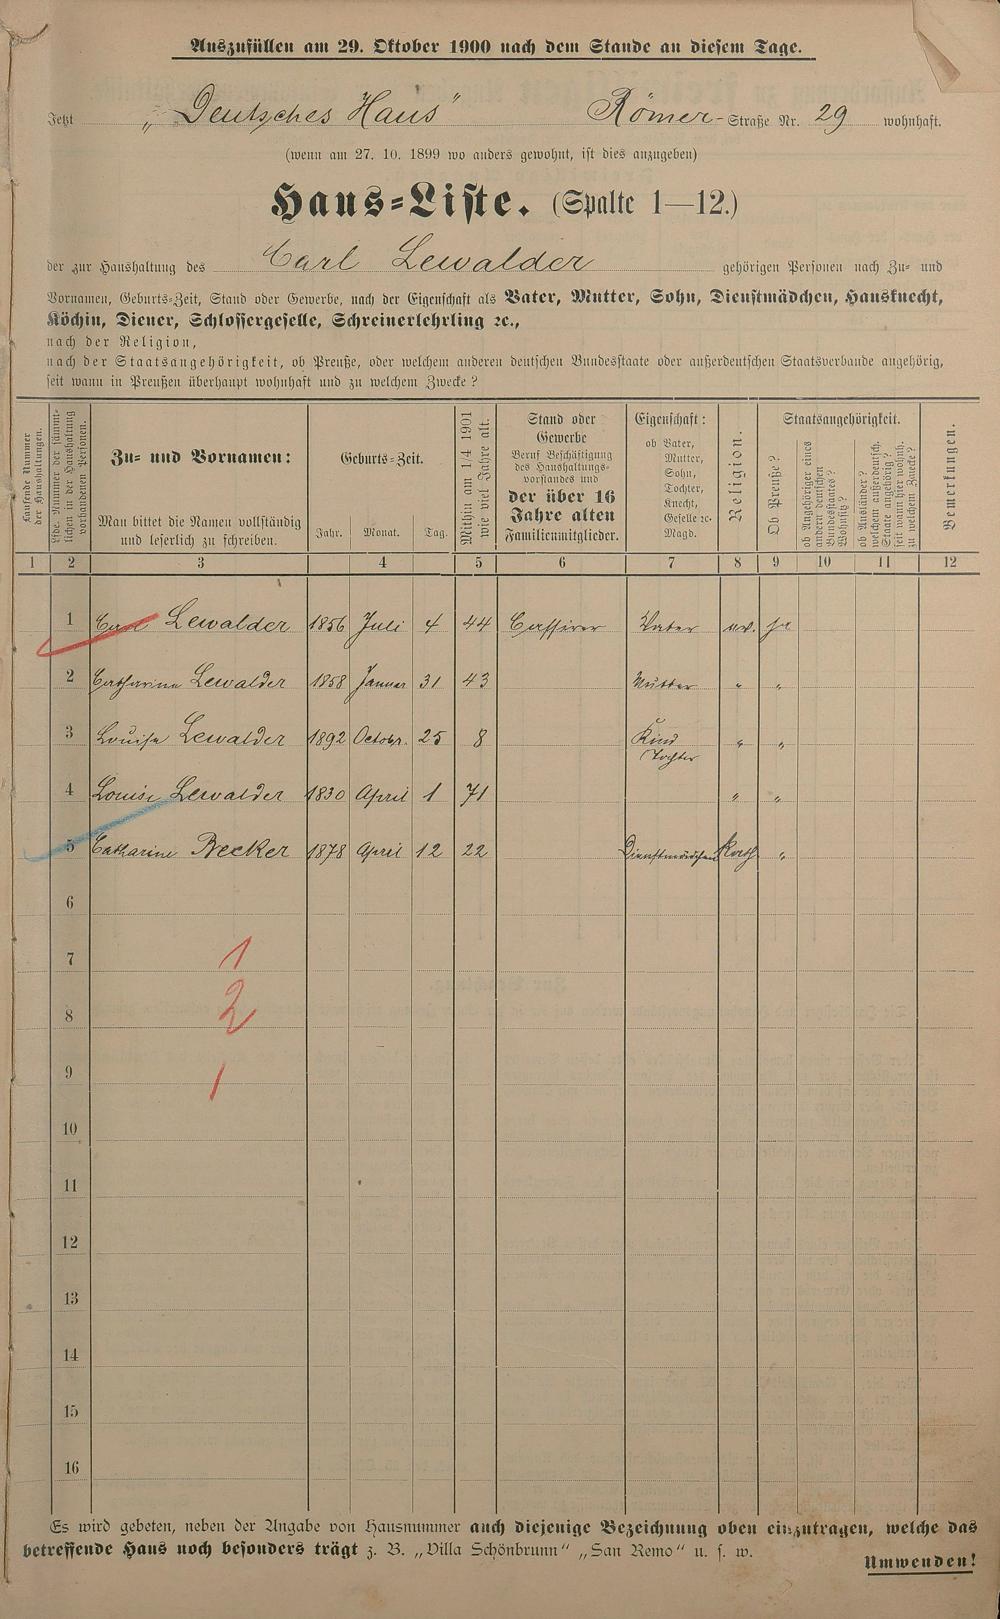 Auszufüllen am 29. Oktober 1900 nach dem Stande an diesem Tage.
Jetzt „Deutsches Haus“ Römer-Straße Nr. 29 wohnhaft.
(wenn am 27. 10. 1899 wo anders gewohnt, ist dies anzugeben)
Haus-Liste. (Spalte 1—12.)
der zur Haushaltung des Carl Lewalder gehörigen Personen nach Zu- und
Vornamen, Geburts-Zeit, Stand oder Gewerbe, nach der Eigenschaft als Vater, Mutter, Sohn, Dienstmädchen, Hausknecht,
Köchin, Diener, Schlossergeselle, Schreinerlehrling ꝛc.,
nach der Religion,
nach der Staatsangehörigkeit, ob Preuße, oder welchem anderen deutschen Bundesstaate oder außerdeutschen Staatsverbande angehörig,
seit wann in Preußen überhaupt wohnhaft und zu welchem Zwecke?
Laufende Nummer
der Haushaltungen.
Lfde. Nummer der sämmt-
lichen in der Haushaltung
vorhandenen Personen.
Zu- und Vornamen:
Man bittet die Namen vollständig
und leserlich zu schreiben.
Geburts-Zeit.
Jahr. Monat. Tag.
Mithin am 1/4 1901
wie viel Jahre alt.
Stand oder
Gewerbe
Beruf Beschäftigung
des Haushaltungs-
vorstandes und
der über 16
Jahre alten
Familienmitglieder.
Eigenschaft:
ob Vater,
Mutter,
Sohn,
Tochter,
Knecht,
Geselle ꝛc.
Magd.
Religion.
Staatsangehörigkeit.
Ob Preuße?
ob Angehöriger eines
andern deutschen
Bundesstaates?
Wohnsitz?
ob Ausländer?
welchem außerdeutsch.
Staate angehörig?
seit wann hier wohnh.
zu welchem Zwecke?
Bemerkungen.
1 2 3 4 5 6 7 8 9 10 11 12
1 Carl Lewalder 1856 Juli 4 44 Cassirer Vater ev. ja
2 Catharina Lewalder 1858 Januar 31 43 Mutter " "
3 Louise Lewalder 1892 Octobr. 25 8 Kind " "
Tochter
4 Louise Lewalder 1830 April 1 71 " "
5 Catharine Becker 1878 April 12 22 Dienstmädchen Kath "
6
7 1
8 2
9 1
10
11
12
13
14
15
16
Es wird gebeten, neben der Angabe von Hausnummer auch diejenige Bezeichnung oben einzutragen, welche das
betreffende Haus noch besonders trägt z. B. „Villa Schönbrunn“ „San Remo“ u. s. w.
Umwenden!